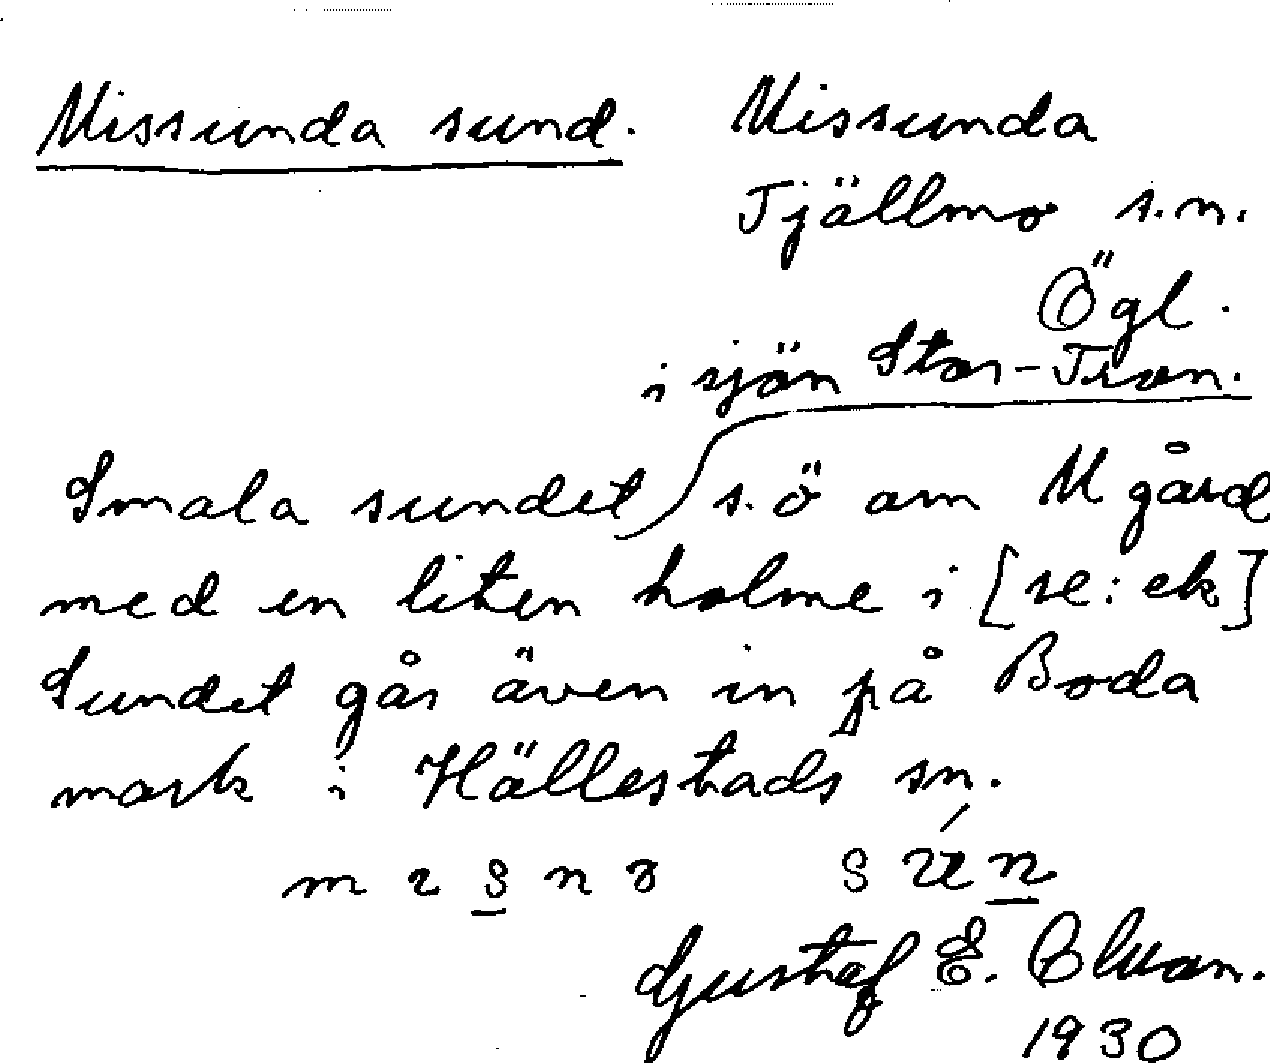 Missunda sund. Missunda
Tjällmo s.n.
Ögl.
i sjön Stor-Tron.
Smala sundet s.ö om M gård
med en liten holme i [se: ek]
Sundet går även in på Boda
mark i Hällestads sn.
Gustaf E.
1930